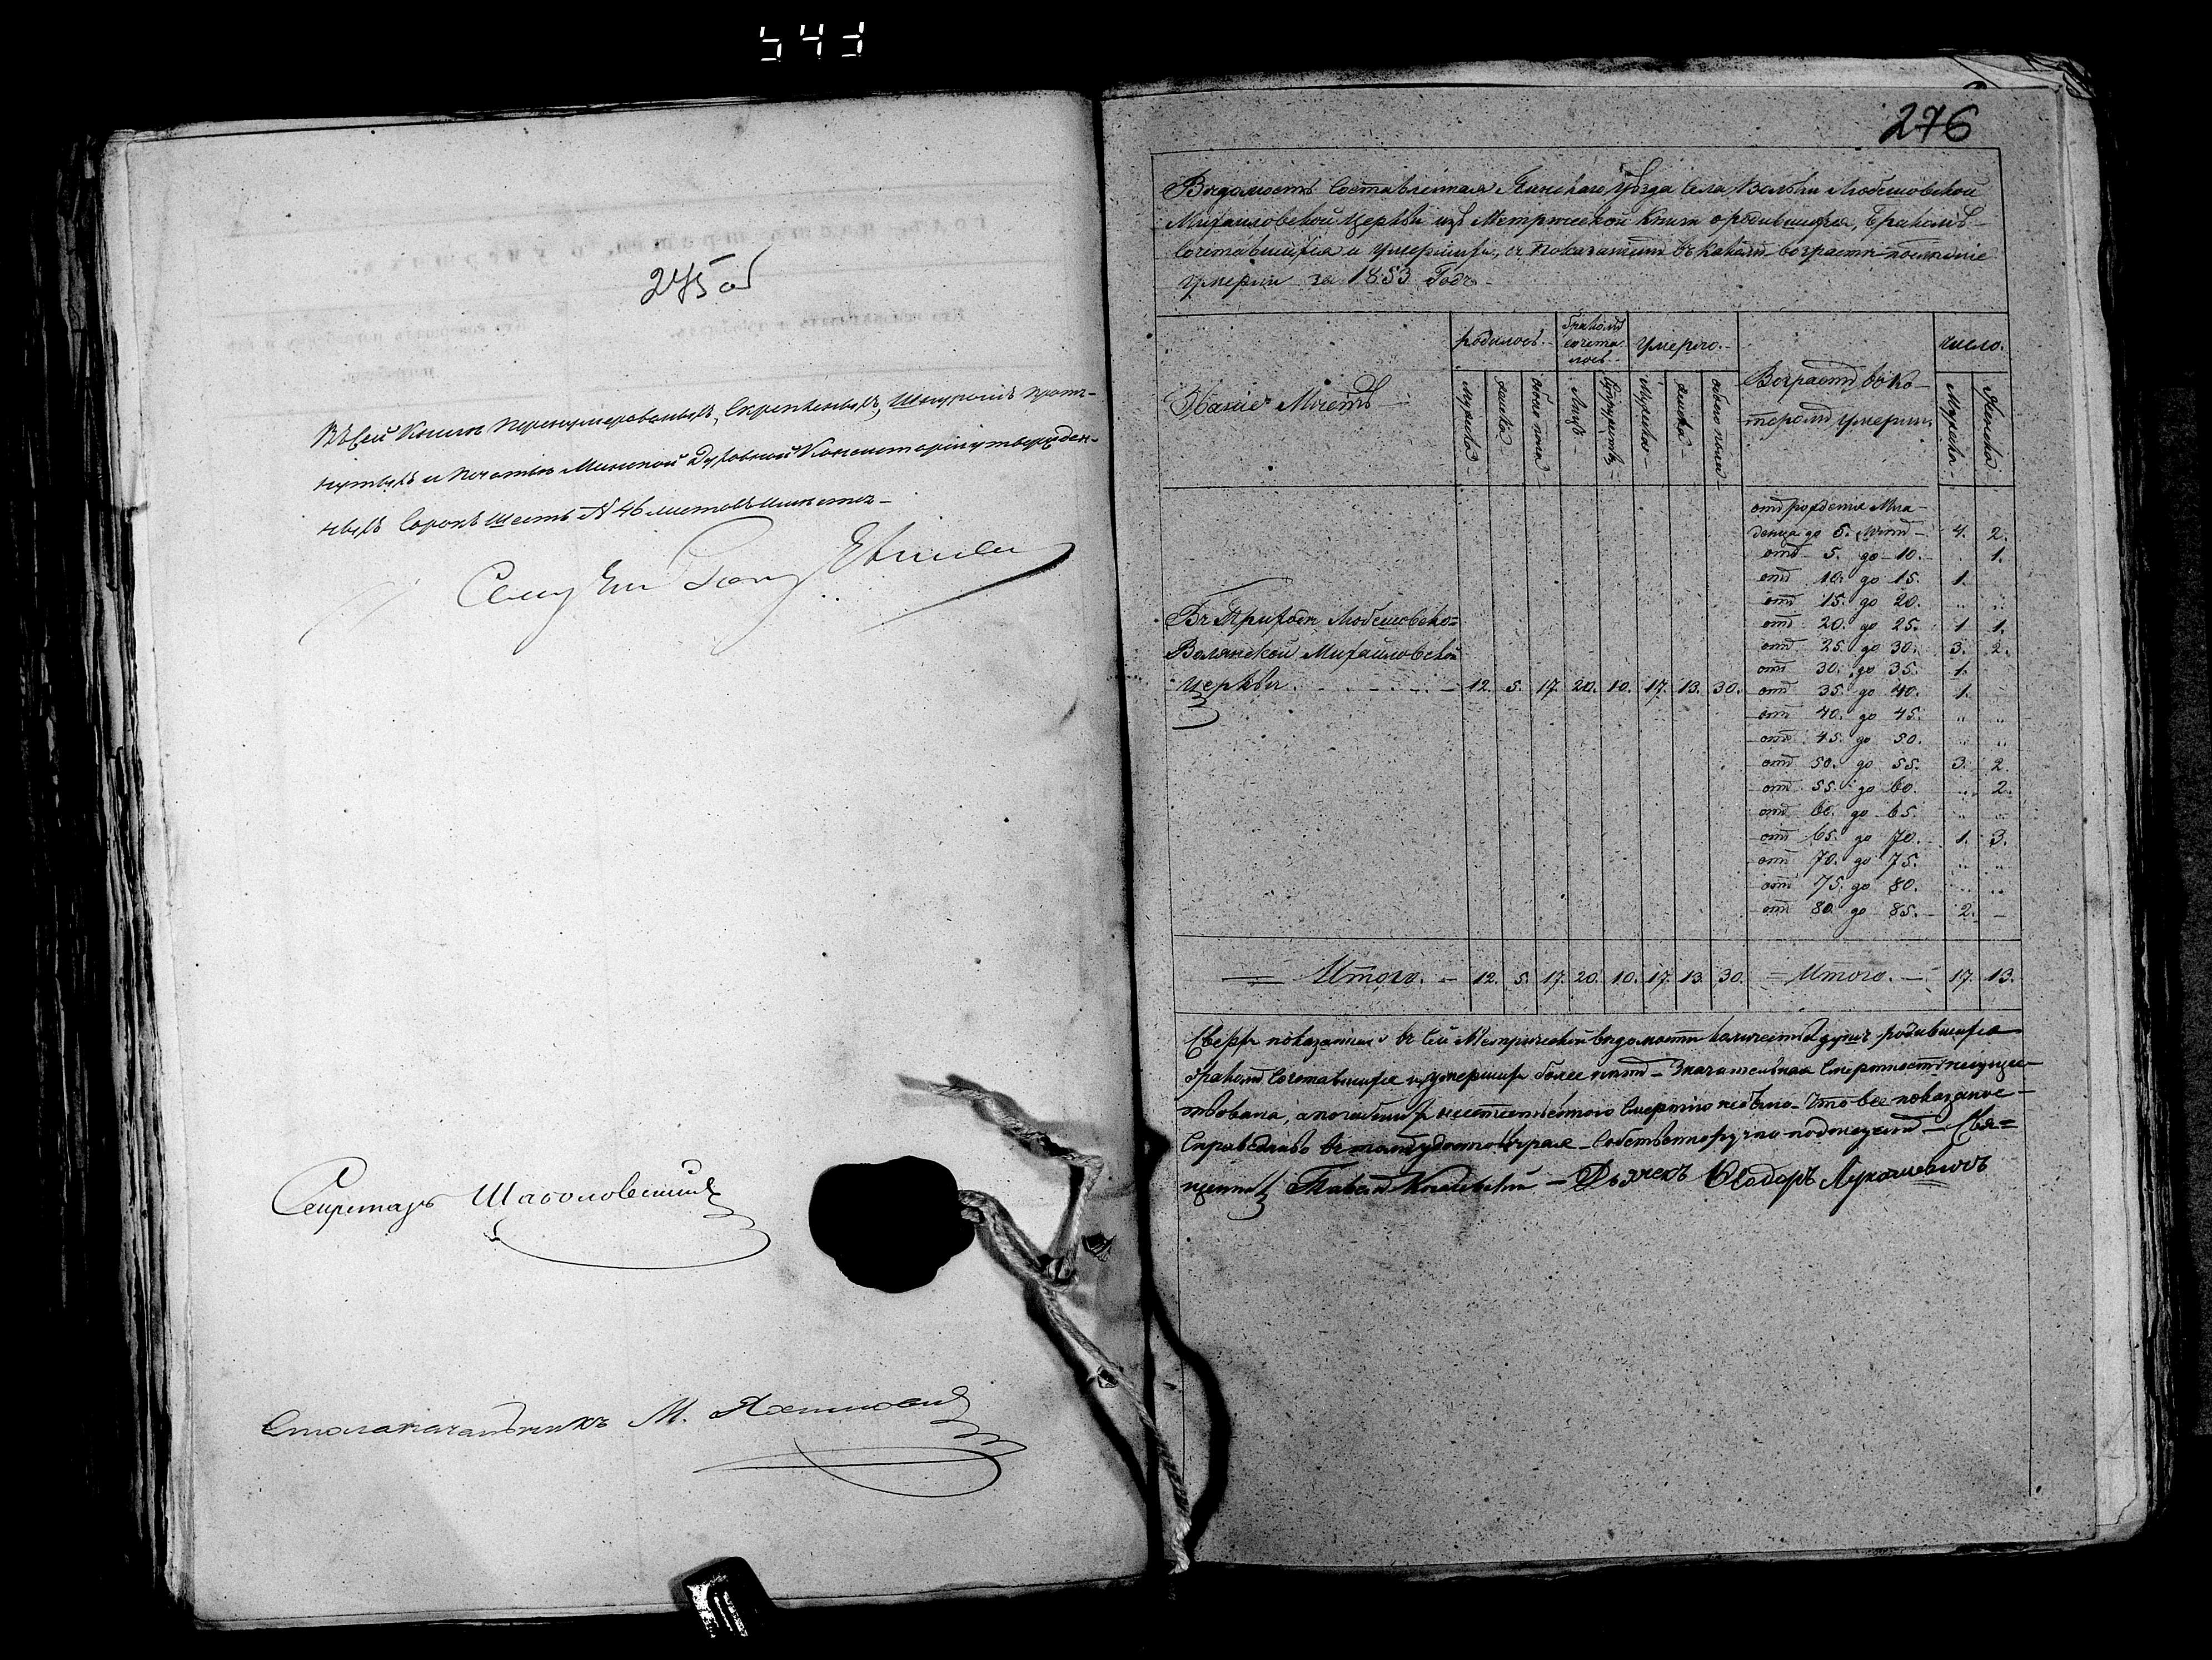 543
275 об
Въ сей Книгѣ перенумерованныхъ, скрепленныхъ, Шнуромъ протя-
нутыхъ и печатью Минской Духовной Консисторіи утвержден-
ныхъ Сорокъ шесть № 46 листовъ
Секретарь Шаболовскій
Столоначальникъ М.
276
Вѣдомость Составленная Пинскаго уѣзда Села Вольки Любешовской
Михайловской церкви изъ Метрической Книги о родившихся, бракомъ
сочетавшихся и умершихъ, съ показаніемъ въ какомъ возрастѣ последніе
умерли за 1853 Годъ
Званіе Мѣстъ
родилось.
бракомъ
сочета
лось
Умерло.
Возрастъ въ ко-
торомъ умерли
число.
Мужеска
Женска
обоего пола
Лицъ
Супружествъ
Мужеска
Женска
обоего пола
Мужеска
Женска
отъ рожденія Мла-
денца до 5. лѣтъ 4. 2.
отъ 5. до 10. 1.
отъ 10. до 15. 1.
отъ 15. до 20. .. ..
отъ 20. до 25. 1 1.
отъ 25. до 30. 3. 2.
отъ 30. до 35. 1.
отъ 35. до 40. 1. -
отъ 40. до 45. .. ..
отъ 45. до 50. .. ..
отъ 50. до 55. 3. 2
отъ 55. до 60. .. 2.
отъ 60. до 65. .. ..
отъ 65. до 70. 1. 3.
отъ 70. до 75. .. ..
отъ 75. до 80. .. ..
отъ 80 до 85. 2. -
Въ Приходѣ Любешовско=
Волянской Михайловской
церкви. 12. 5. 17. 20. 10. 17. 13. 30.
Итого. 12. 5. 17. 20. 10. 17. 13. 30. Итого. 17. 13.
Сверхъ показанныхъ въ сей Метрической вѣдомости количества душъ родившихся
бракомъ сочетавшихся и умершихъ более нѣтъ - Значительная Смертность несущес-
твовала, а погибшихъ Смертію небыло - Что все показанное
Справедливо въ томъ удостоверяя - Собственноручно подписуемся - Свя=
щенникъ Павелъ - Дьячекъ Ѳеодоръ Лукашевичъ